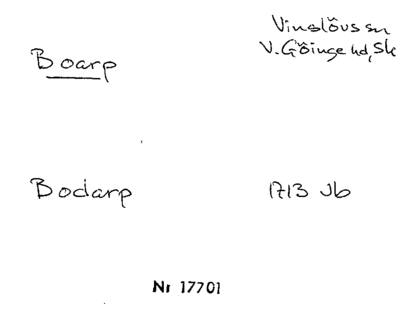 Vinslövs sn
Boarp
V. Göinge hd, Sk
Bodarp 1713 Jb
Nr 17701